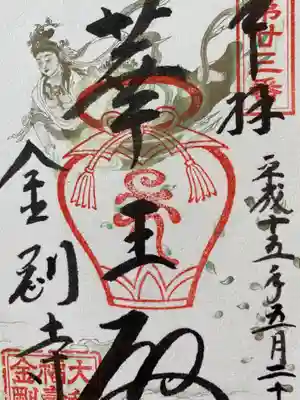 第廿三番
奉拝
平成十五年五月二十
華王殿
金剛寺